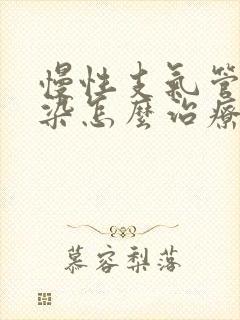 慢性支氣管
染怎麼治療
慕容梨落